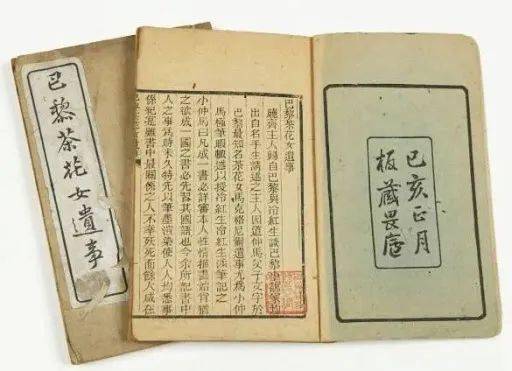 巴黎茶花女遺事
己亥正月
板藏畏廬
巴黎茶花女遺事
曉齋主人歸自巴黎與冷紅生談巴黎小說家均
出自名手生請述之主人因道仲馬父子文字於
巴黎最知名茶花女馬克格尼爾遺事尤為小仲
馬極筆暇輒述以授冷紅生冷紅生涉筆記之
小仲馬曰凡成一書必詳審本人性情描畫始肖猶
之欲成一國之書必先習其國語也今余所記書中
人之事為時未久特先以筆墨渲染使人人均悉事
係紀實雖書中最關係之人不幸夭死而餘人咸在